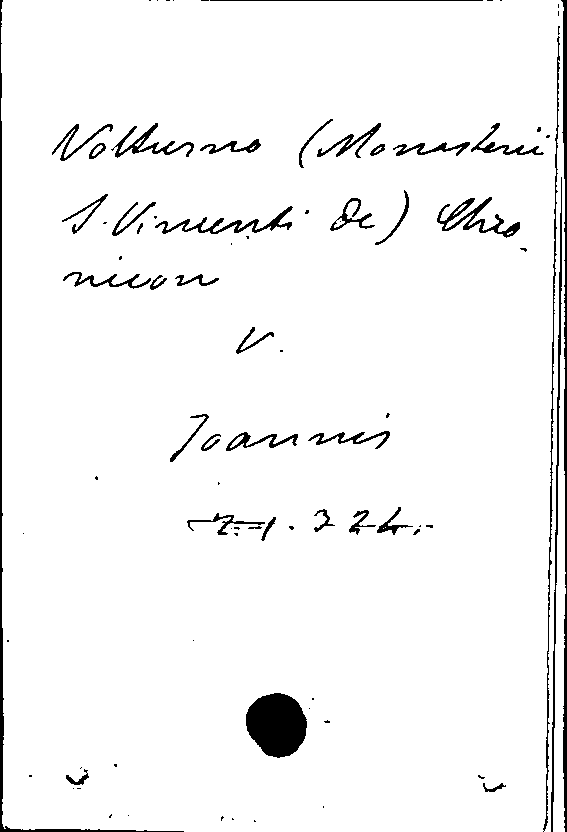 Volturno (Monasterii
S. Vincenti de) Chro
nicon
V.
Joannis
71.324.